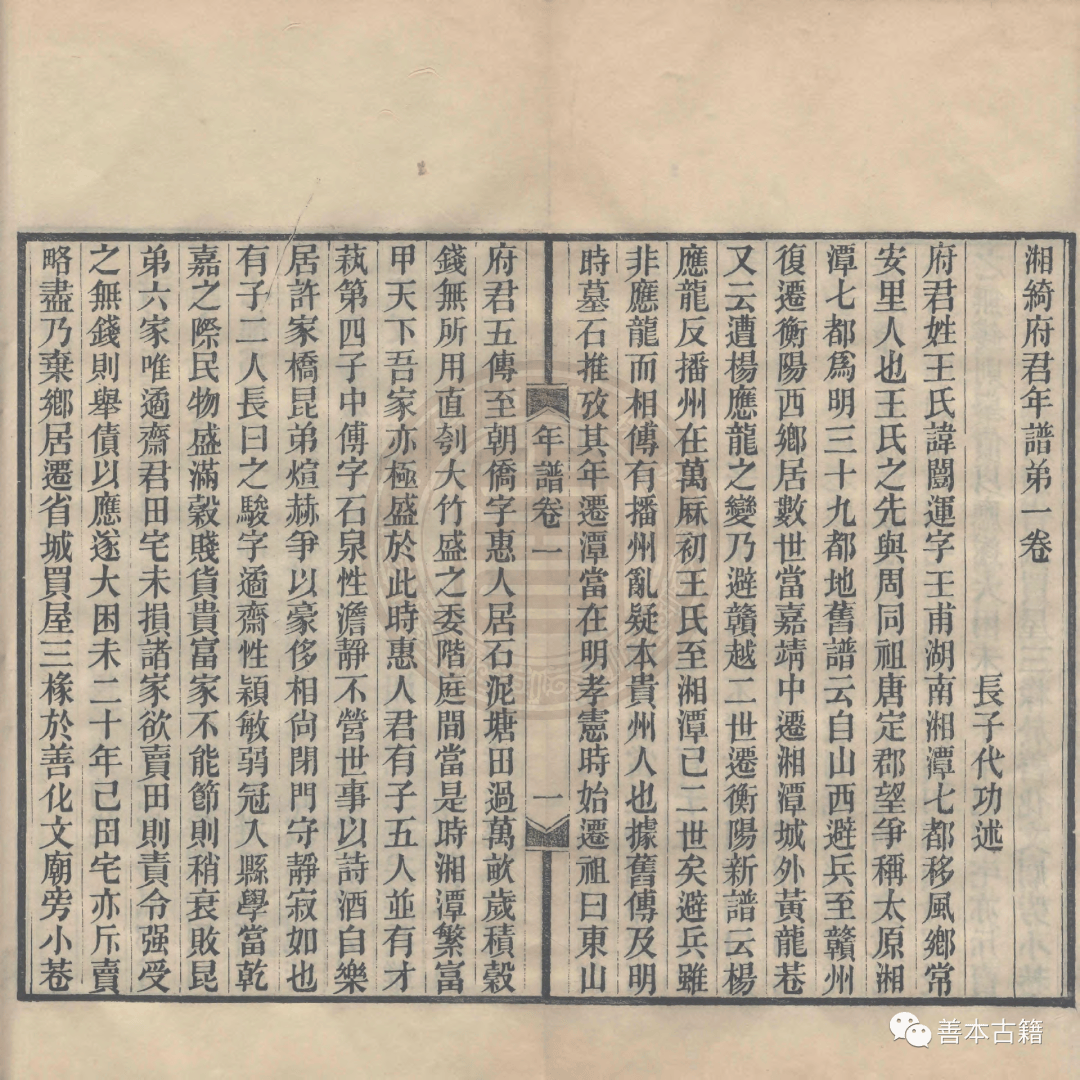 湘綺府君年譜弟一卷
長子代功述
府君姓王氏諱闓運字壬甫湖南湘潭七都移風鄉常
安里人也王氏之先與周同祖唐定郡望爭稱太原湘
潭七都爲明三十九都地舊譜云自山西避兵至贛州
復遷衡陽西鄉居數世當嘉靖中遷湘潭城外黃龍巷
又云遭楊應龍之變乃避贛越二世遷衡陽新譜云楊
應龍反播州在萬厤初王氏至湘潭已二世矣避兵雖
非應龍而相傳有播州亂疑本貴州人也據舊傳及明
時墓石推攷其年遷潭當在明孝憲時始遷祖曰東山
年譜卷一
一
府君五傳至朝僑字惠人居石泥塘田過萬畝歲積穀
錢無所用直刳大竹盛之委階庭間當是時湘潭繁富
甲天下吾家亦極盛於此時惠人君有子五人並有才
埶第四子中傅字石泉性澹靜不營世事以詩酒自樂
居許家橋昆弟煊赫爭以豪侈相尙閉門守靜寂如也
有子二人長曰之駿字遹齋性穎敏弱冠入縣學當乾
嘉之際民物盛滿穀賤貨貴富家不能節則稍衰敗昆
弟六家唯遹齋君田宅未損諸家欲賣田則責令强受
之無錢則舉債以應遂大困未二十年已田宅亦斥賣
略盡乃棄鄉居遷省城買屋三椽於善化文廟旁小巷
善本古籍